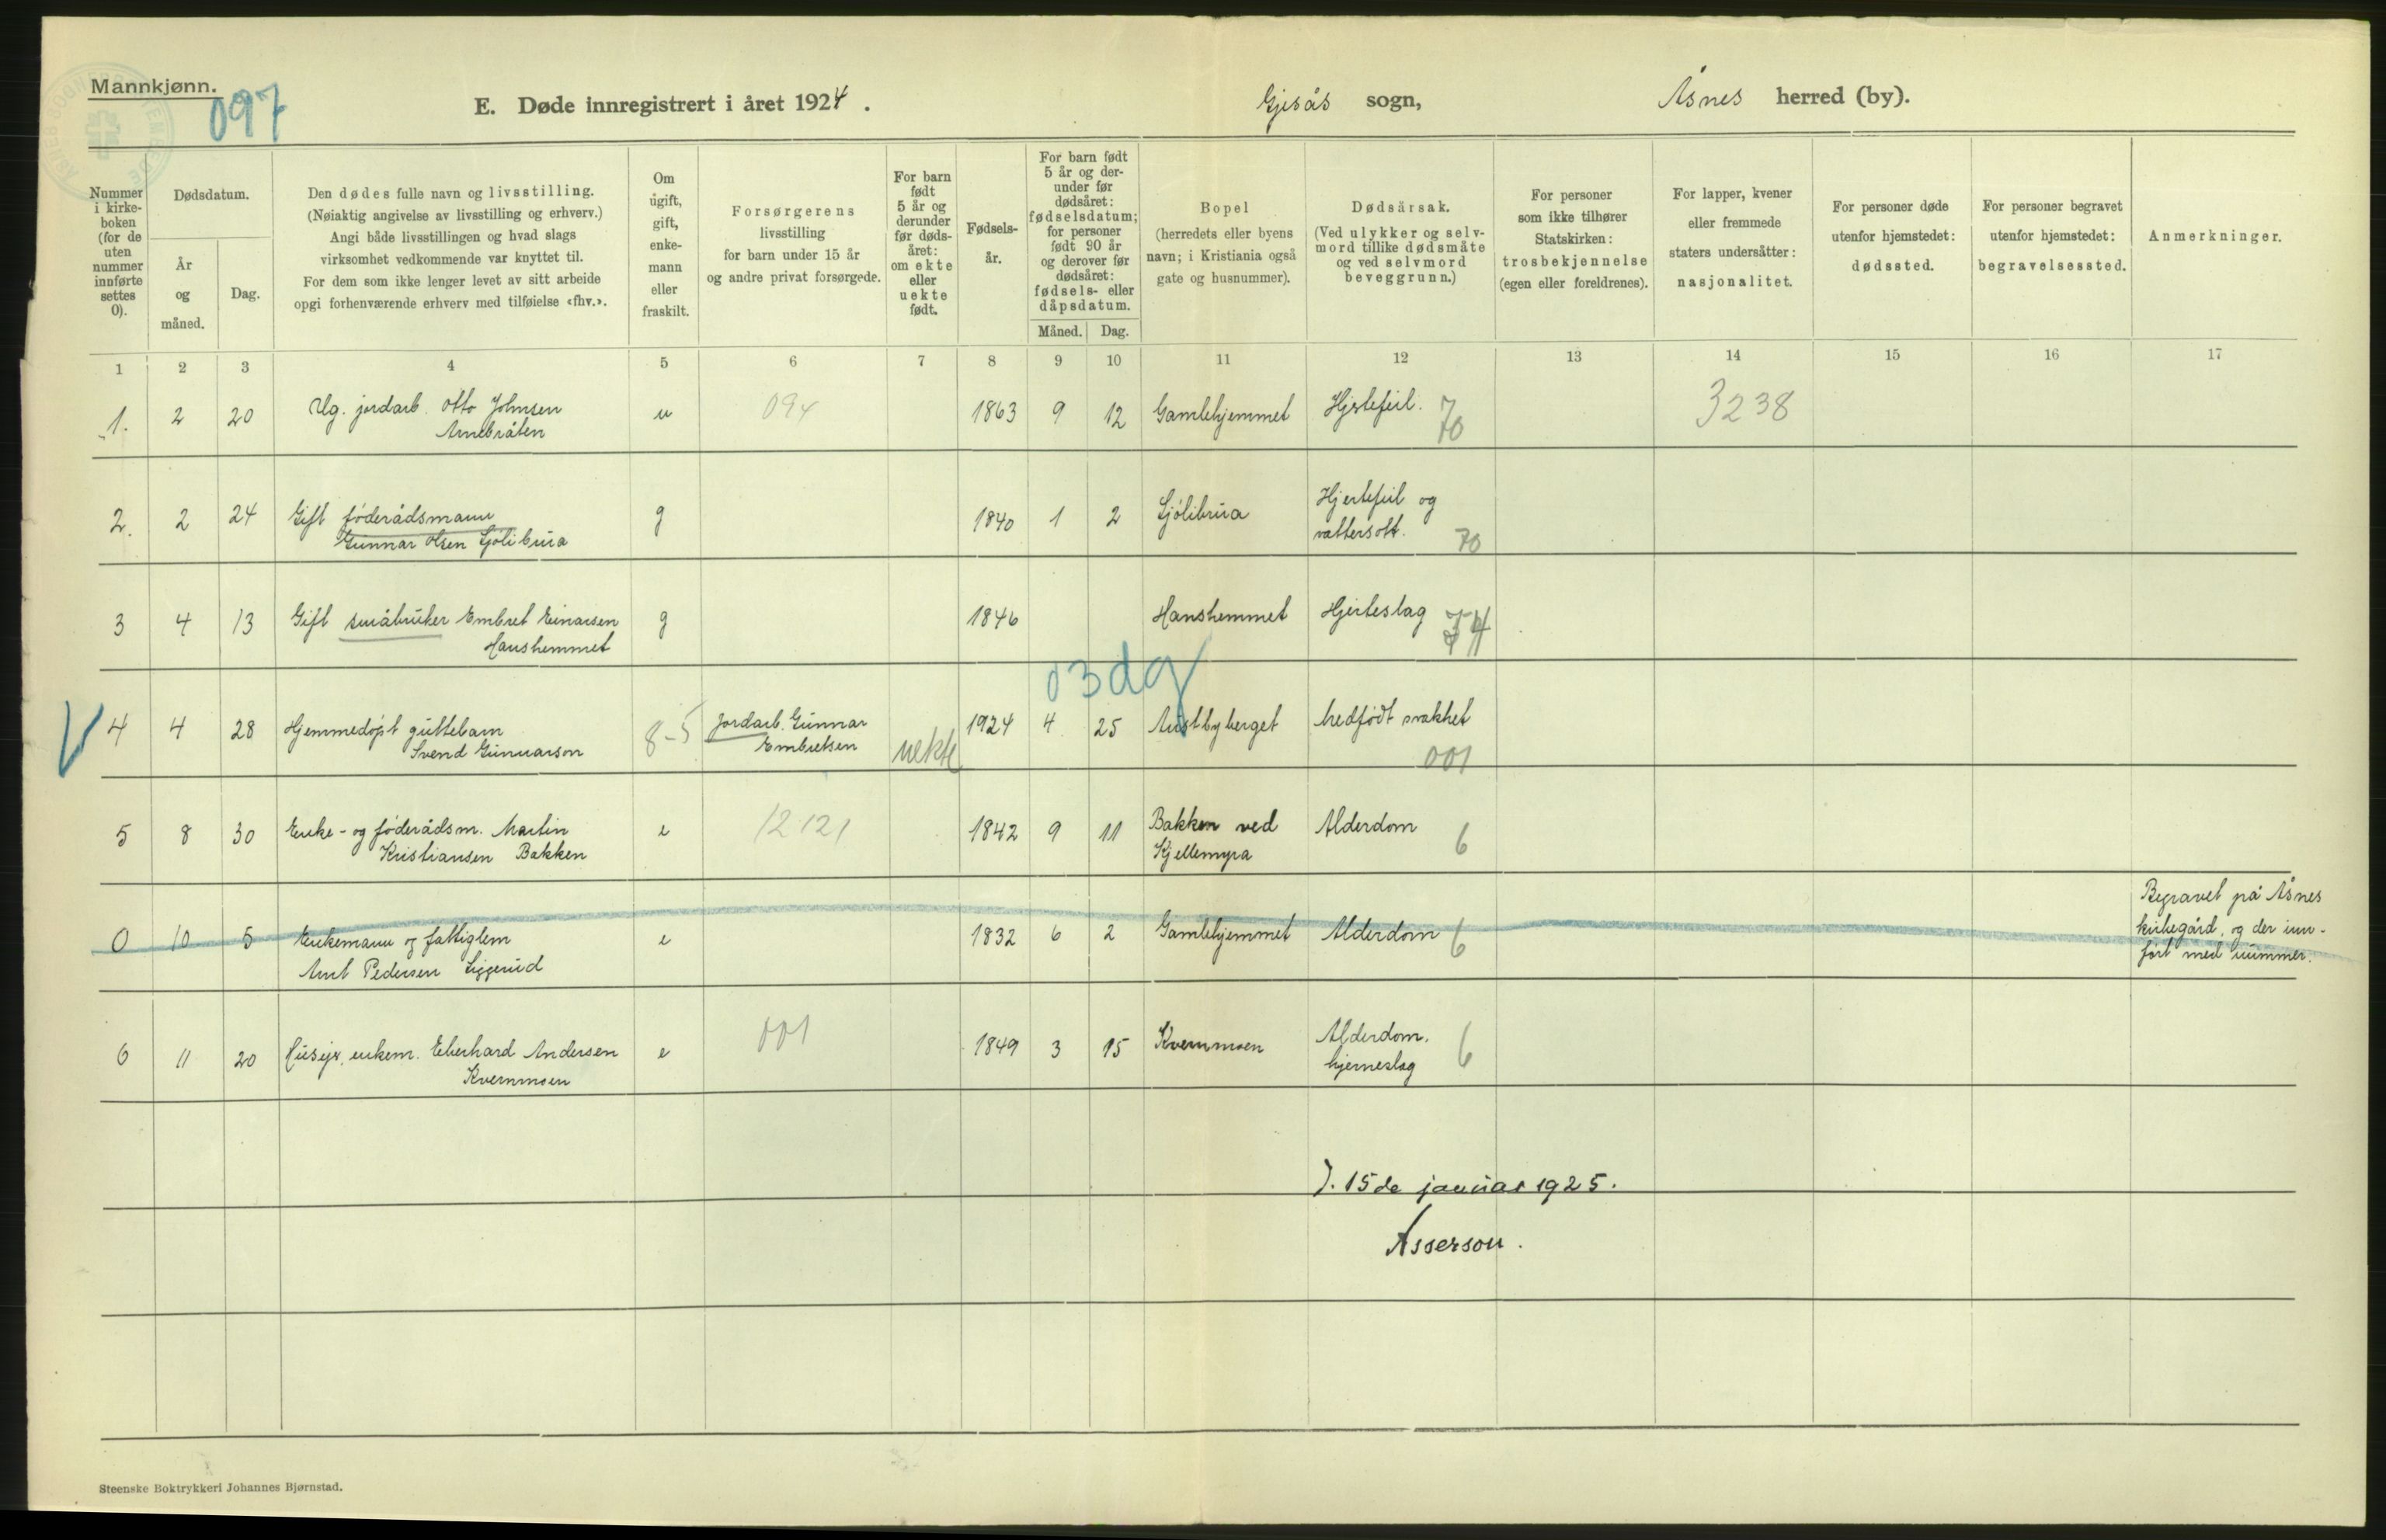 Mannkjønn.
097
E. Døde innregistrert i året 1924.
Gjesås sogn,
Åsnes herred (by).
Nummer
i kirke-
boken
(for de
uten
nummer
innførte
settes
0).
Dødsdatum.
År
og
måned.
Dag.
Den dødes fulle navn og livsstilling.
(Nøiaktig angivelse av livsstilling og erhverv.)
Angi både livsstillingen og hvad slags
virksomhet vedkommende var knyttet til.
For dem som ikke lenger levet av sitt arbeide
opgi forhenværende erhverv med tilføielse «fhv.».
Om
ugift,
gift,
enke-
mann
eller
fraskilt.
Forsørgerens
livsstilling
for barn under 15 år
og andre privat forsørgede.
For barn
født
5 år og
derunder
før døds-
året:
om ekte
eller
uekte
født.
Fødsels-
år.
For barn født
5 år og der-
under før
dødsåret:
fødselsdatum;
for personer
født 90 år
og derover før
dødsåret:
fødsels- eller
dåpsdatum.
Måned. Dag.
Bopel
(herredets eller byens
navn; i Kristiania også
gate og husnummer).
Dødsårsak.
(Ved ulykker og selv-
mord tillike dødsmåte
og ved selvmord
beveggrunn.)
For personer
som ikke tilhører
Statskirken:
trosbekjennelse
(egen eller foreldrenes).
For lapper, kvener
eller fremmede
staters undersåtter:
nasjonalitet.
For personer døde
utenfor hjemstedet:
dødssted.
For personer begravet
utenfor hjemstedet:
begravelsessted.
Anmerkninger.
1 2 3 4 5 6 7 8 9 10 11 12 13 14 15 16 17
1. 2 20 Ug. jordarb. Otto Johnsen u 094 1863 9 12 Gamlehjemmet Hjertefeil. 70 3238
Arnebråten
2. 2 24 Gift føderådsmann g 1840 1 2 Sjølibrua Hjertefeil og
Gunnar Olsen Sjølibrua vattersott. 70
3 4 13 Gift småbruker Embret Einarsen g 1846 Hanshemmet Hjerteslag 74
Hanshemmet
03dg
4 4 28 Hjemmedøpt guttebarn 8-5 Jordarb. Gunnar uekte 1924 4 25 Austbyberget Medfødt svakhet
Svend Gunnarson Embretsen 001
5 8 30 Enke- og føderådsm. Martin e 12121 1842 9 11 Bakken ved Alderdom 6
Kristiansen Bakken Kjellemyra
0 10 5 Enkemann og fattiglem e 1832 6 2 Gamlehjemmet Alderdom 6
Arnt Pedersen Liggerud
Begravet på Åsnes
kirkegård, og der inn-
ført med nummer.
6 11 20 Husejer, enkem. Eberhard Andersen e 001 1849 3 15 Kvernmoen Alderdom, 6
Kvernmoen hjerneslag
15de januar 1925.
Asserson.
Steenske Boktrykkeri Johannes Bjørnstad.